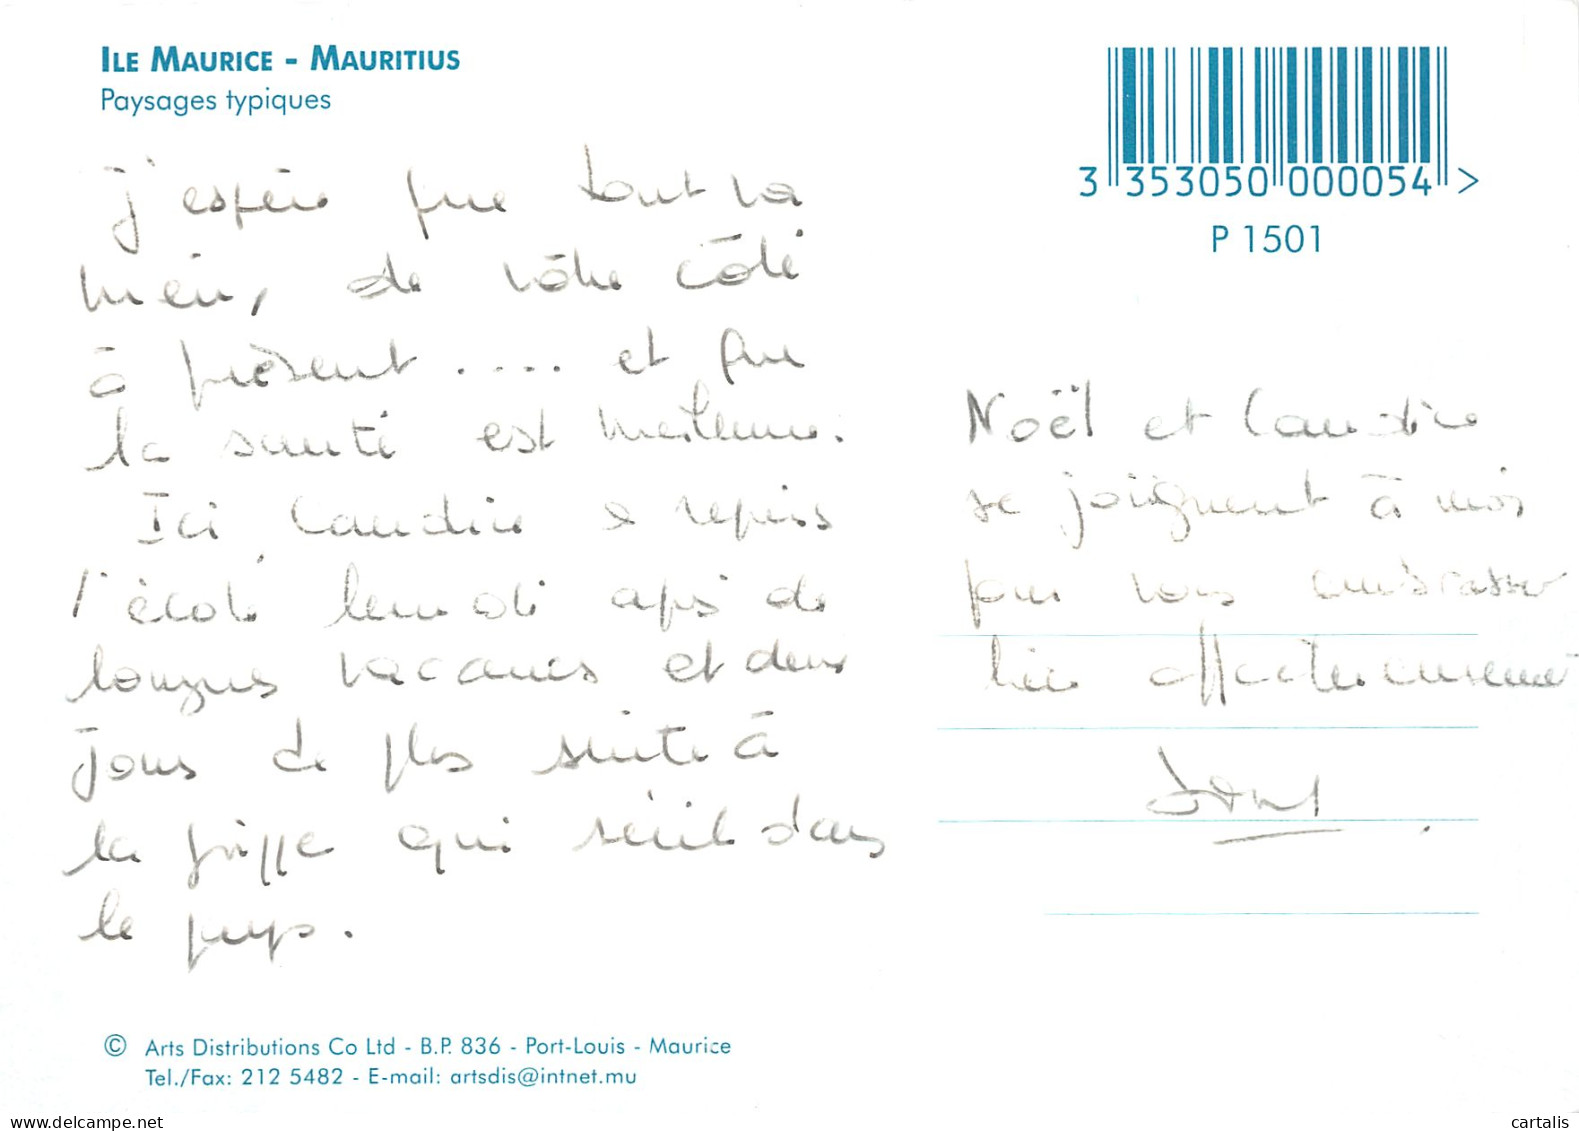 ILE MAURICE - MAURITIUS
Paysages typiques
J'espère que tout va
bien, de vôtre côté
à présent .... et que
la santé est meilleure.
Ici, Claudine a repris
l'école lundi après de
longues vacances et deux
jours de plus suite à
la grippe qui sévit dans
le pays.
3 353050 000054 >
P 1501
Noël et Claudine
se joignent à moi
pour vous embrasser
bien affectueusement
© Arts Distributions Co Ltd - B.P. 836 - Port-Louis - Maurice
Tel./Fax: 212 5482 - E-mail: artsdis@intnet.mu
www.delcampe.net
cartalis